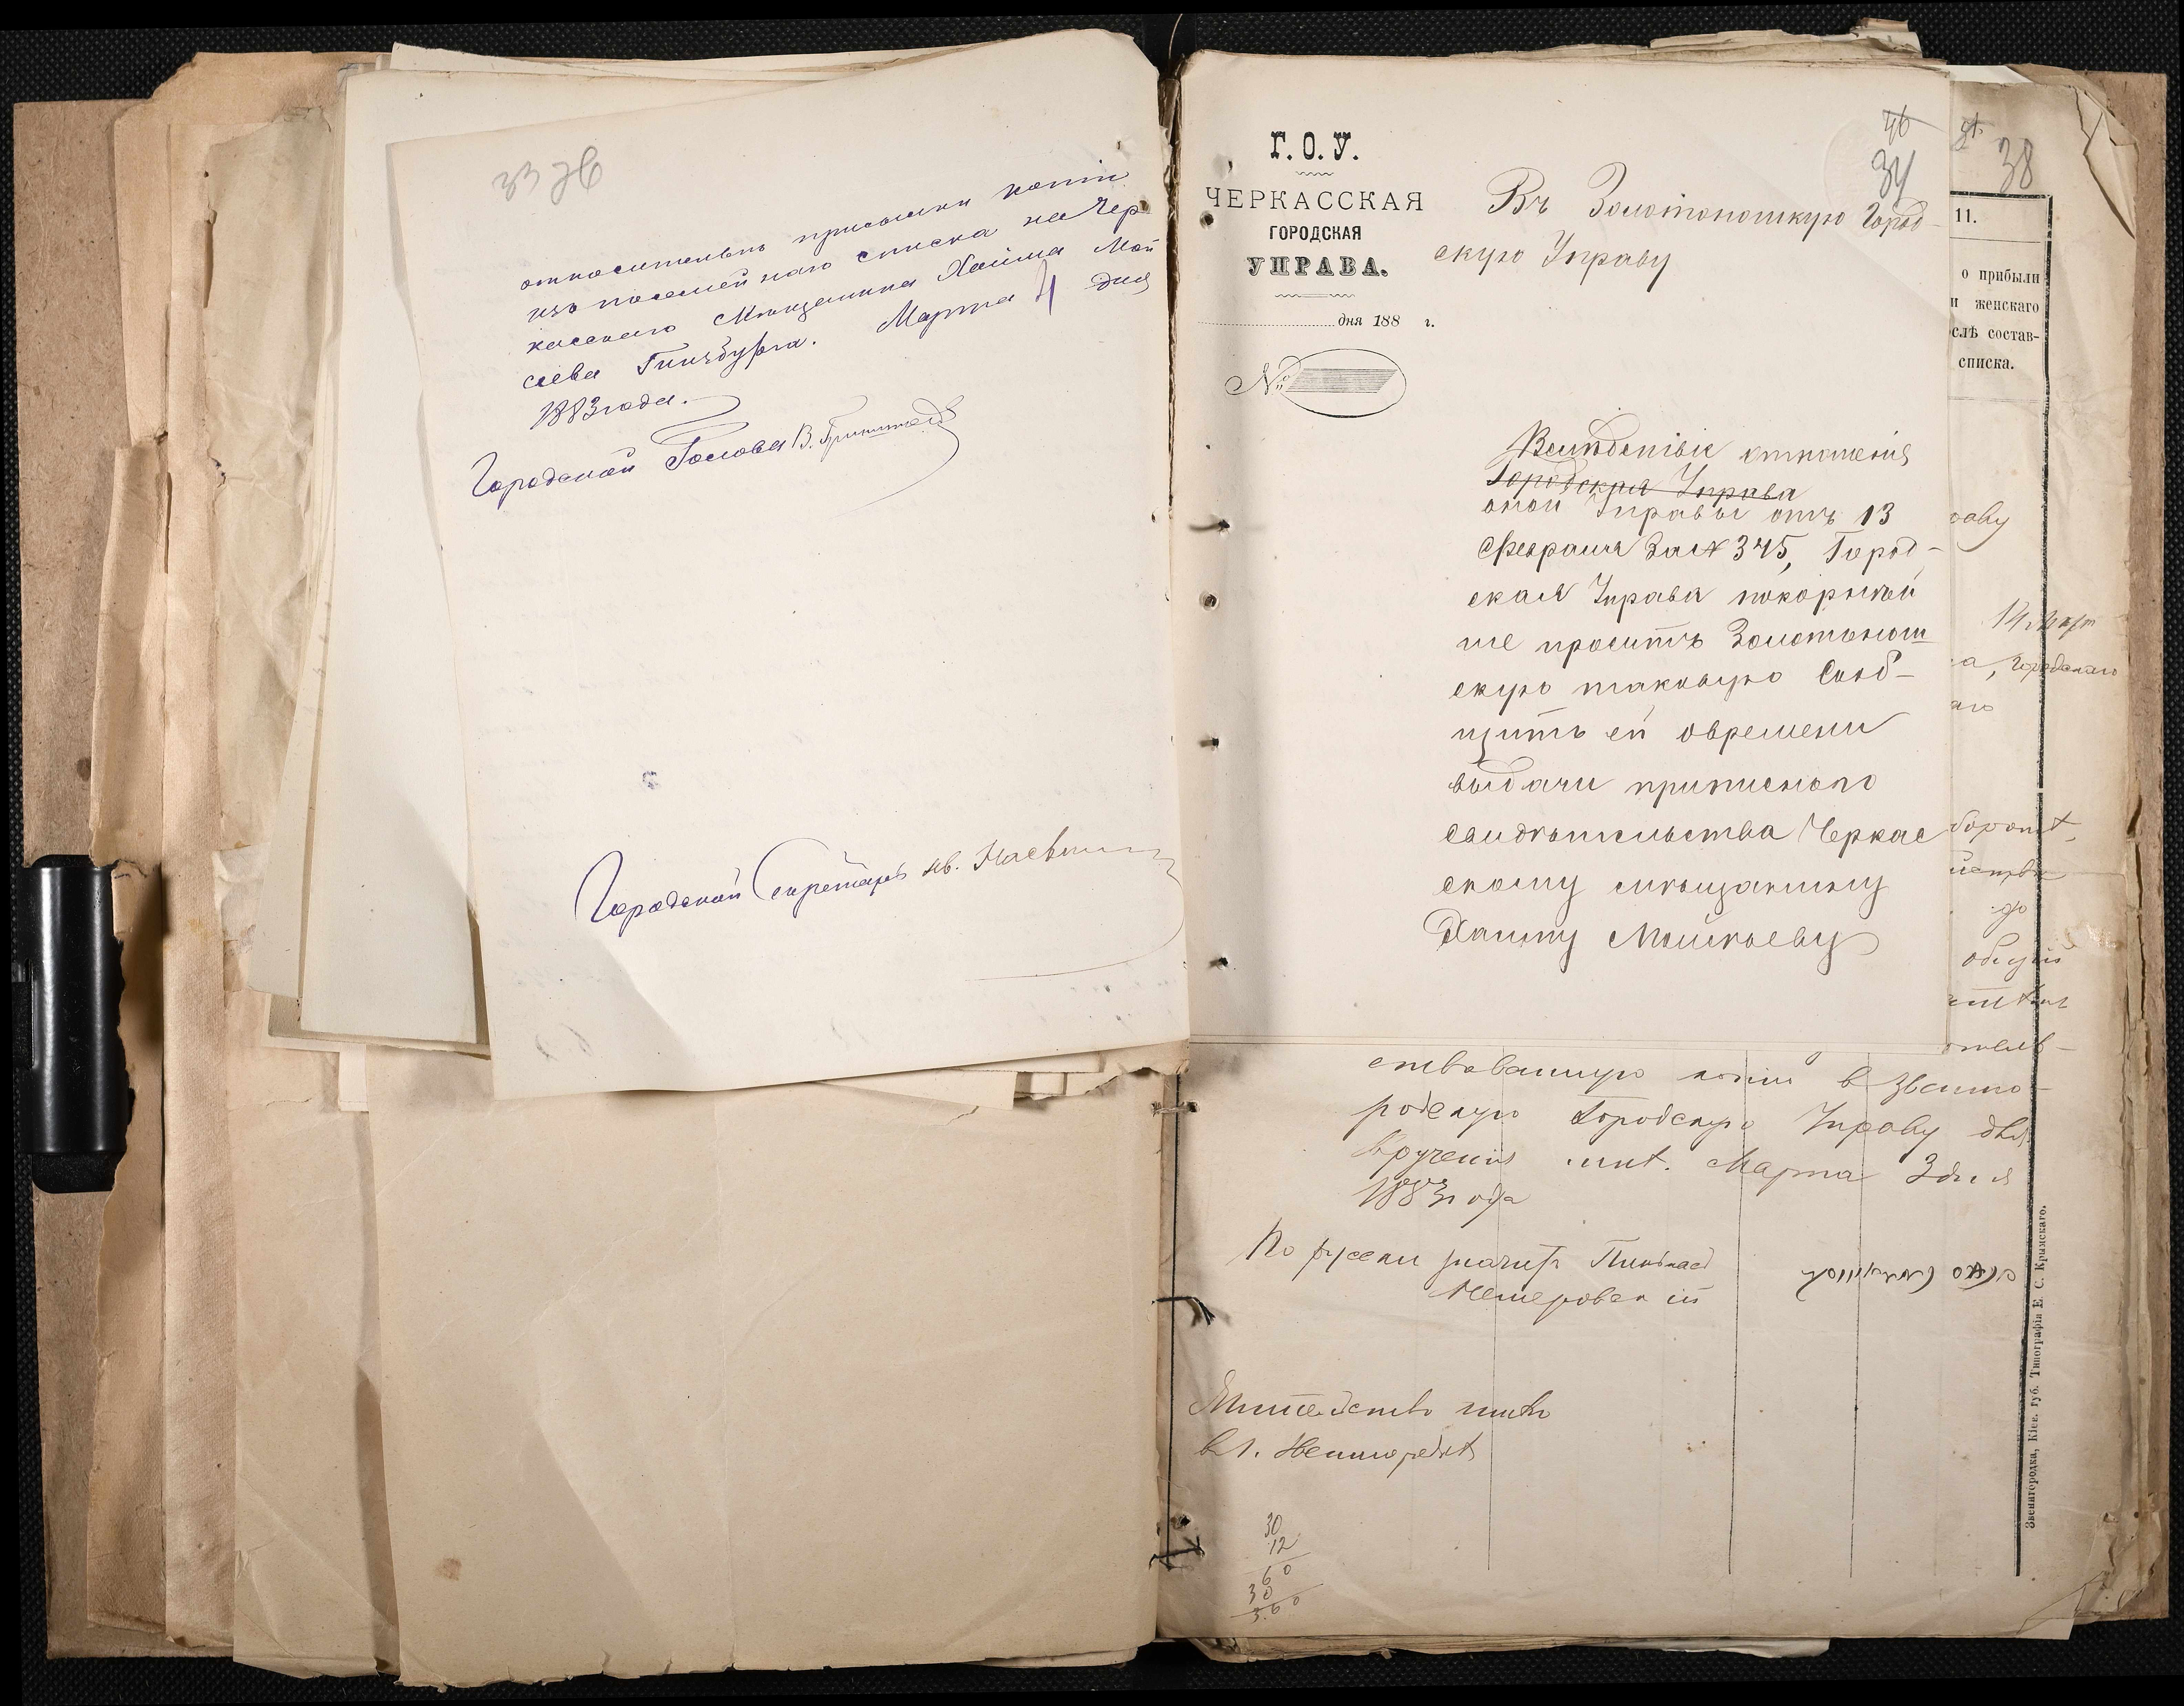 33 об
относительно присылки копіи
изъ посемейнаго списка на Чер
касскаго Мѣщанина Хайма Мой
сеева Гинзбурга. Марта 4 дня
1883 года.
Городской Голова В.
Городской Секретарь кв.
46
34
Г. О. У.
ЧЕРКАССКАЯ
ГОРОДСКАЯ
УПРАВА.
дня 188 г.
№
Въ Золотоношкую Город-
скую Управу
Вслѣдствіе отношенія
Городская Управа
оной Управы отъ 13
Февраля за № 375, Город-
ская Управа покорнѣй
ше проситъ Золотонош
скую таковую Сооб-
щить ей овремени
выдачи приписного
свидѣтельства Черкас
скому мѣщанину
Хаиму Мошкѣеву
38
11.
о прибыли
и женскаго
слѣ состав-
списка.
раву
14 Март
а, Городскаго
аго
до
общей
ствовавшую копію в Звенио-
родскую Городскую Управу для
вручения Марта 3 дня
1883 года
По русски значит Пинхас
Немеровскій
Жительство имѣю
в г. Звенигородкѣ
30
12
60
30
3.60
Звенигородка, Кіев. губ. Типографія Е. С. Крымскаго.